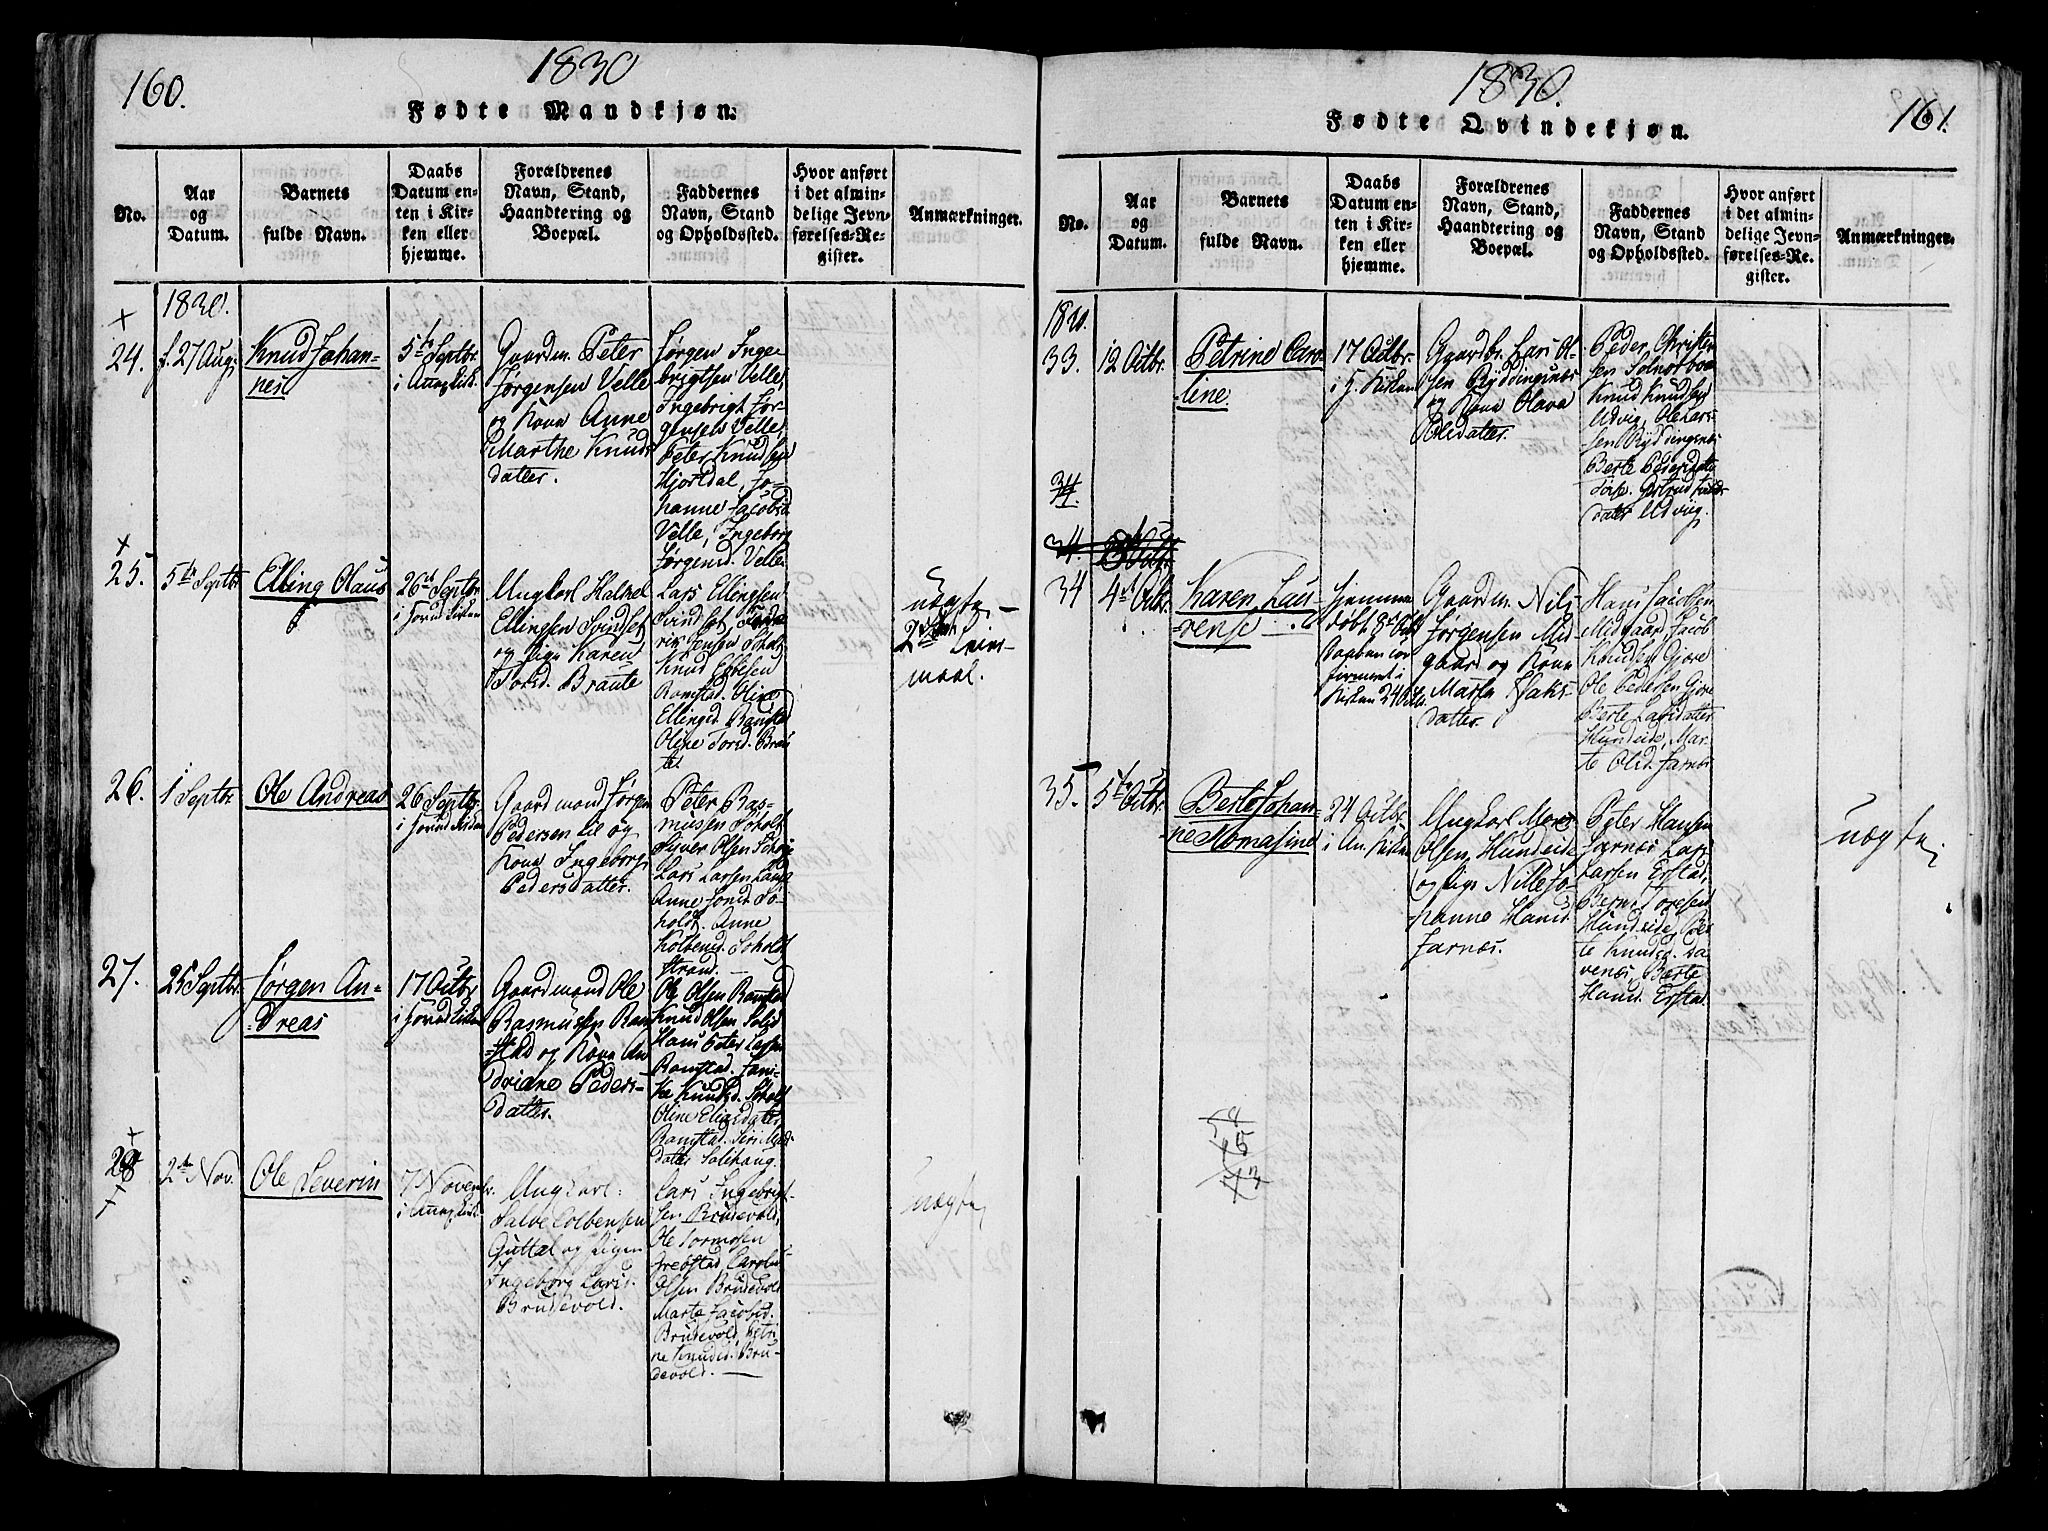 160.
1830
Fødte Mandkjøn.
No.
Aar
og
Datum.
Barnets
fulde Navn.
Daabs
Datum en-
ten i Kir-
ken eller
hjemme.
Forældrenes
Navn, Stand,
Haandtering og
Boepæl.
Faddernes
Navn, Stand
og Opholdssted.
Hvor anført
i det almin-
delige Jevn-
førelses-Re-
gister.
Anmærkninger.
1830.
24.
f. 27 Aug
Knud Johan-
nes
5te Septbr
i
Gaardm. Peter
Jørgensen Velle
og Kone Anne
Marthe Knuds
datter.
Jørgen Inge-
brigtsen Velle,
Ingebrigt Jør-
gensen Velle
Peter Knudsen
Hjortdal, Jo-
hanne Jacobsd
Velle, Ingeborg
Jørgensd. Velle
25.
5te Septbr
Elling Olaus
26de Septbr
i Kirken
Ungkarl
Ellingsen Svindset
og Pige Karen
Torsd. Braute
Lars Ellingsen
Svindset,
Jensen Soholt
Knud Ebbesen
Ramstad, Oline
Ellingsd. Ramstad
Oline Torsd. Brau
te
uægte
2den Leier-
maal.
26.
1 Septbr
Ole Andreas
26 Septbr
i
Gaardmand Jørgen
Pedersen og
Kone Ingeborg
Pedersdatter.
Peter Ras-
mussen Soholt
Syver Olsen
Lars Larsen
Anne Jonsd. So-
holt. Anne
Kolbensd. Soholt
strand.
27.
25 Septbr.
Jørgen An-
dreas
17 Octbr
i
Gaardmand Ole
Rasmussen Ram
stad og Kone An
driane Peders-
datter.
Ole Olsen Ramstad
Knud Olsen
Hans Peter Larsen
Ramstad.
Knudsd. Soholt
Oline Eliasdatter
Ramstad. Siri
datter Solihaug.
28
2de Nov.
Ole Severin
7 Novembr.
i
Ungkarl
Salve Colbensen
Guttal og Pigen
Ingeborg Larsd.
Brudevold.
Lars Ingebrigt-
sen Brudevold,
Ole Tormosen
Carolus
Olsen Brudevold
Marte Jacobsd.
Brudevold, Petri-
ne Knudsd. Bru-
devold.
uægte
1830.
Fødte Qvindekjøn.
161.
No.
Aar
og
Datum.
Barnets
fulde Navn.
Daabs
Datum en-
ten i Kir-
ken eller
hjemme.
Forældrenes
Navn, Stand,
Haandtering og
Boepæl.
Faddernes
Navn, Stand
og Opholdssted.
Hvor anført
i det almin-
delige Jevn-
førelses-Re-
gister.
Anmærkninger.
1830.
33.
12 Octbr.
Petrine Caro-
line
17 Octbr.
i H. Kirken
Gaardbr. Lars Ol-
sen Ryddingsnes
og Kone Olava
Olsdatter.
Peder Christen
sen Solnør
Knud Knudsen
Udvig, Ole Lars-
sen Ryddingsnes
Berte Pedersdatter
datter Udvig.
34.
34.
34
4de Octbr.
Karen Lau-
rense
hjemme
døbt 8de Octb
Daaben con
firmeret i
Kirken 24 Octb.
Gaardm. Nils
Jørgensen Mid-
gaard og Kone
Martha Isaks-
datter.
Hans Jacobsen
Midgaard, Jacob
Knudsen Gjøre
Ole Pedersen Gjøre
Berte Larsdatter
Hundeide, Mar-
te Olsd. Farnes
35.
5te Octbr.
Berte Johan-
ne Tomasine
24 Octbr.
i An. Kirken
Ungkarl
Olsen Hundeide
og Pige Nille Jo-
hanne Hansd.
Farnes.
Peter Hansen
Farnes, Lars
Larsen Erstad,
Bernt Toresen
Hundeide, Ber-
te Knudsd. Da-
venes, Berte
Hansd. Erstad.
uægte